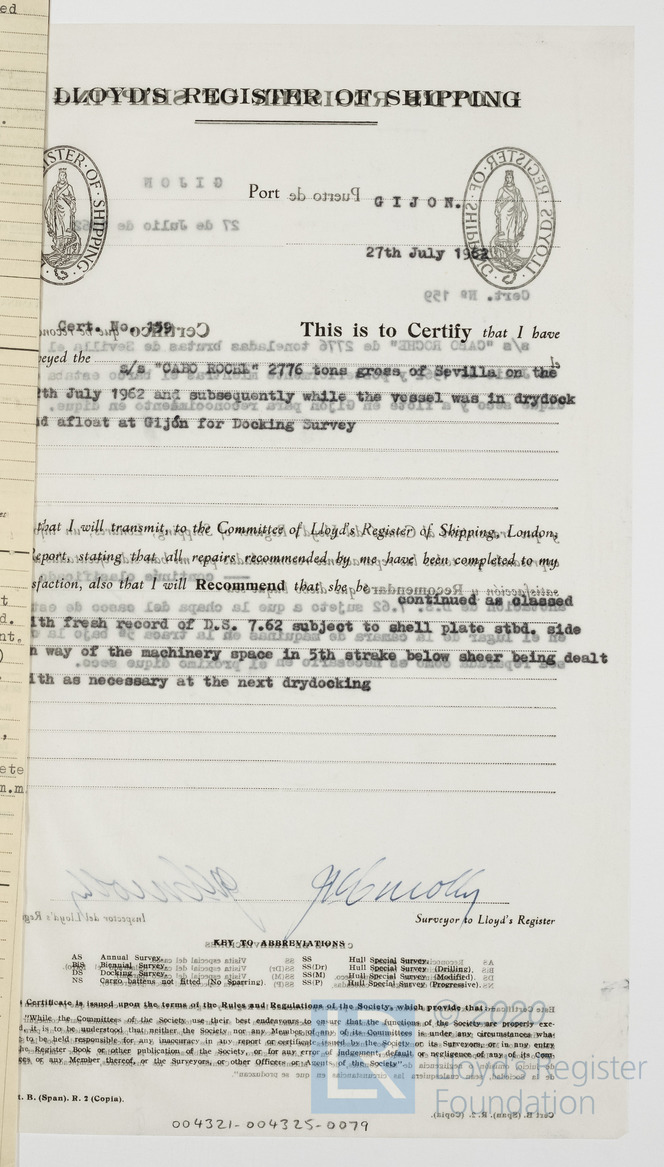 ed
LLOYD'S REGISTER OF SHIPPING
Port GIJON.
27th July 1962
Cert. No. 159
This is to Certify that I have
eyed the s/s "CABO ROCHE" 2776 tons gross of Sevilla on the
th July 1962 and subsequently while the vessel was in drydock
d afloat at Gijón for Docking Survey
that I will transmit, to the Committee of Lloyd's Register of Shipping, London,
eport, stating that all repairs recommended by me have been completed to my
sfaction, also that I will Recommend that she be continued as classed
ith fresh record of D.S. 7.62 subject to shell plate stbd. side
n way of the machinery space in 5th strake below sheer being dealt
ith as necessary at the next drydocking
Surveyor to Lloyd's Register
KEY TO ABBREVIATIONS
AS Annual Survey. SS Hull Special Survey.
BiS Biennial Survey. SS(Dr) Hull Special Survey (Drilling).
DS Docking Survey. SS(M) Hull Special Survey (Modified).
NS Cargo battens not fitted (No Sparring). SS(P) Hull Special Survey (Progressive).
Certificate is issued upon the terms of the Rules and Regulations of the Society, which provide that:—
"While the Committees of the Society use their best endeavours to ensure that the functions of the Society are properly exe-
d, it is to be understood that neither the Society nor any Member of any of its Committees is under any circumstances wha-
to be held responsible for any inaccuracy in any report or certificate issued by the Society or its Surveyors, or in any entry
he Register Book or other publication of the Society, or for any error of judgement, default or negligence of any of its Com-
es or any Member thereof, or the Surveyors, or other Officers or Agents of the Society"
t. B. (Span). R. 2 (Copia).
004321-004325-0079
LR
© 2020
Lloyd's Register
Foundation